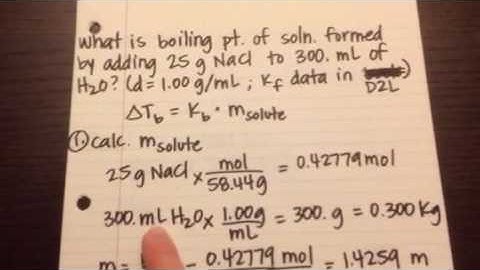 What is boiling pt. of soln. formed
by adding 25 g NaCl to 300. mL of
H₂O? (d = 1.00 g/mL ; Kf data in
D2L)
ΔTb = Kb · msolute
① calc. msolute
25 g NaCl × mol/58.44g = 0.42779 mol
300. mL H₂O × 1.00g/mL = 300. g = 0.300 Kg
m = = 0.42779 mol = 1.4259 m